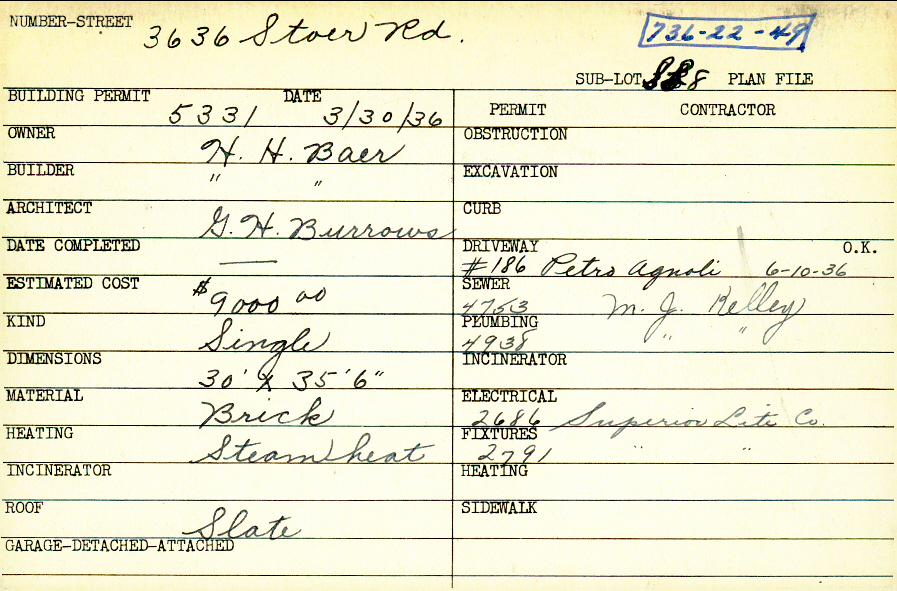 NUMBER-STREET 3636 Stoer Rd.
736-22-49
SUB-LOT 8 PLAN FILE
BUILDING PERMIT DATE
5331 3/30/36
PERMIT CONTRACTOR
OWNER H. H. Baer
BUILDER " "
ARCHITECT G. H. Burrows
DATE COMPLETED —
ESTIMATED COST $9000 00
KIND Single
DIMENSIONS 30' X 35'6"
MATERIAL Brick
HEATING Steam heat
INCINERATOR
ROOF Slate
GARAGE-DETACHED-ATTACHED
OBSTRUCTION
EXCAVATION
CURB
DRIVEWAY O.K.
#186 Petro Agnoli 6-10-36
SEWER
4753 M. J. Kelley
PLUMBING
4938 " "
INCINERATOR
ELECTRICAL
2686 Superior Lite Co.
FIXTURES
2791 " "
HEATING
SIDEWALK